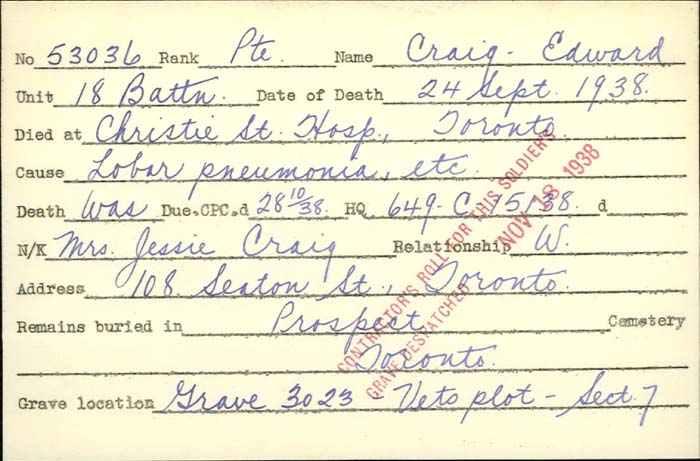 No 53036 Rank Pte. Name Craig - Edward
Unit 18 Battn. Date of Death 24 Sept. 1938.
Died at Christie St. Hosp., Toronto.
Cause Lobar pneumonia, etc.
Death was Due.CPC.d 28 10/38. HQ 649-C-15138. d
N/K Mrs. Jessie Craig Relationship W.
Address 108 Seaton St., Toronto.
Remains buried in Prospect Cemetery
Toronto.
Grave location Grave 3023 - Vets plot - Sect. 7
CONTRACTOR'S ROLL FOR THIS SOLDIER'S
GRAVE DESPATCHED NOV 18 1938